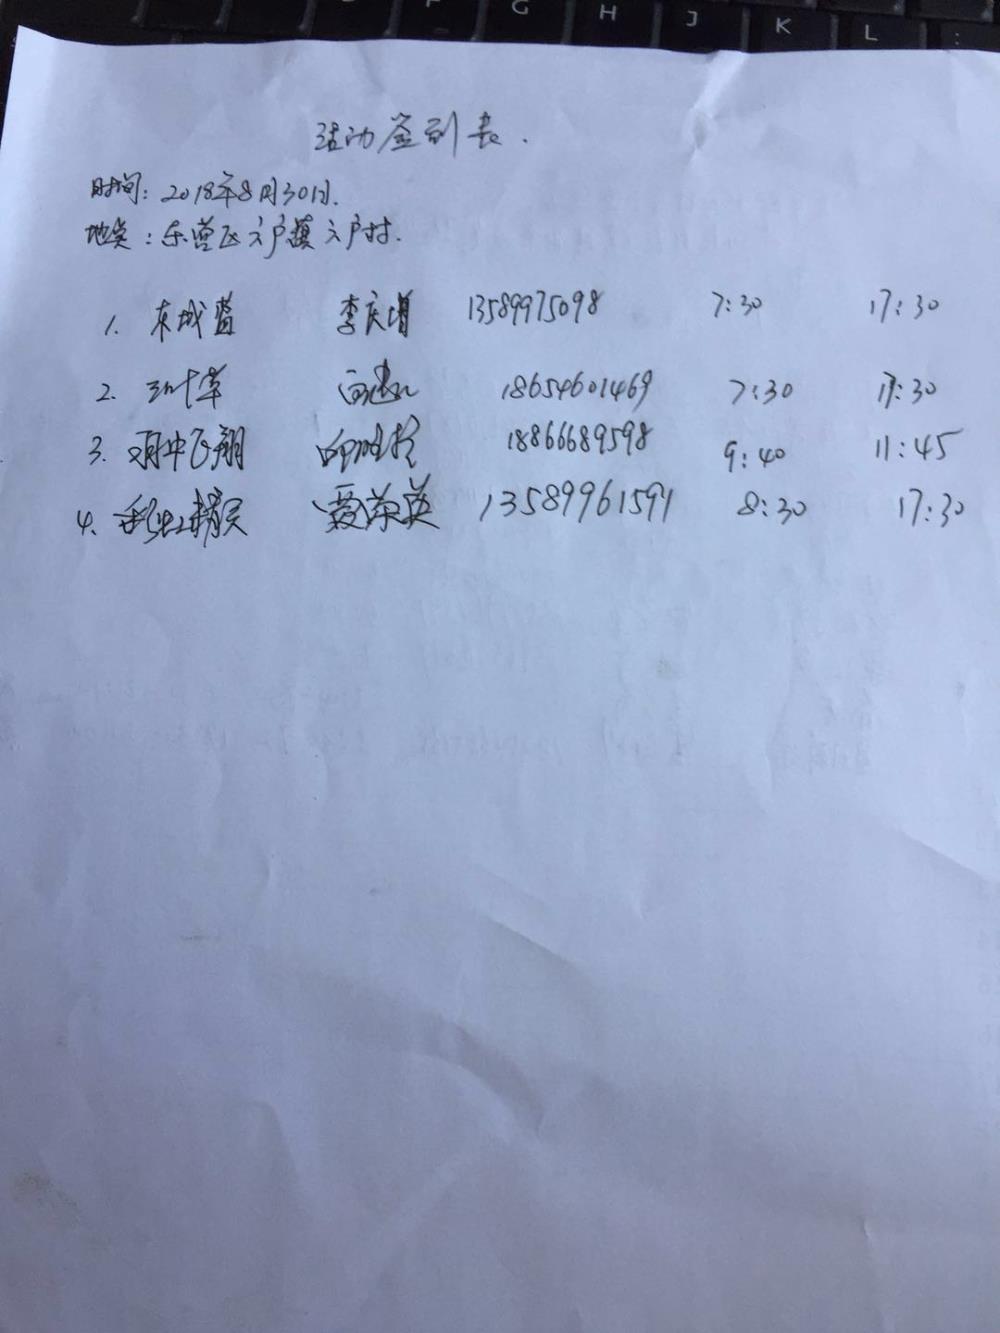 G H J K L :
活动签到表.
时间：2018年8月30日.
地点：东营区六户镇六户村.
1. 东城蓝 李庆增 13589975098 7:30 17:30
2. 三叶草 18654601469 7:30 17:30
3. 雨中飞翔 18866689598 9:40 11:45
4. 荣英 13589961591 8:30 17:30